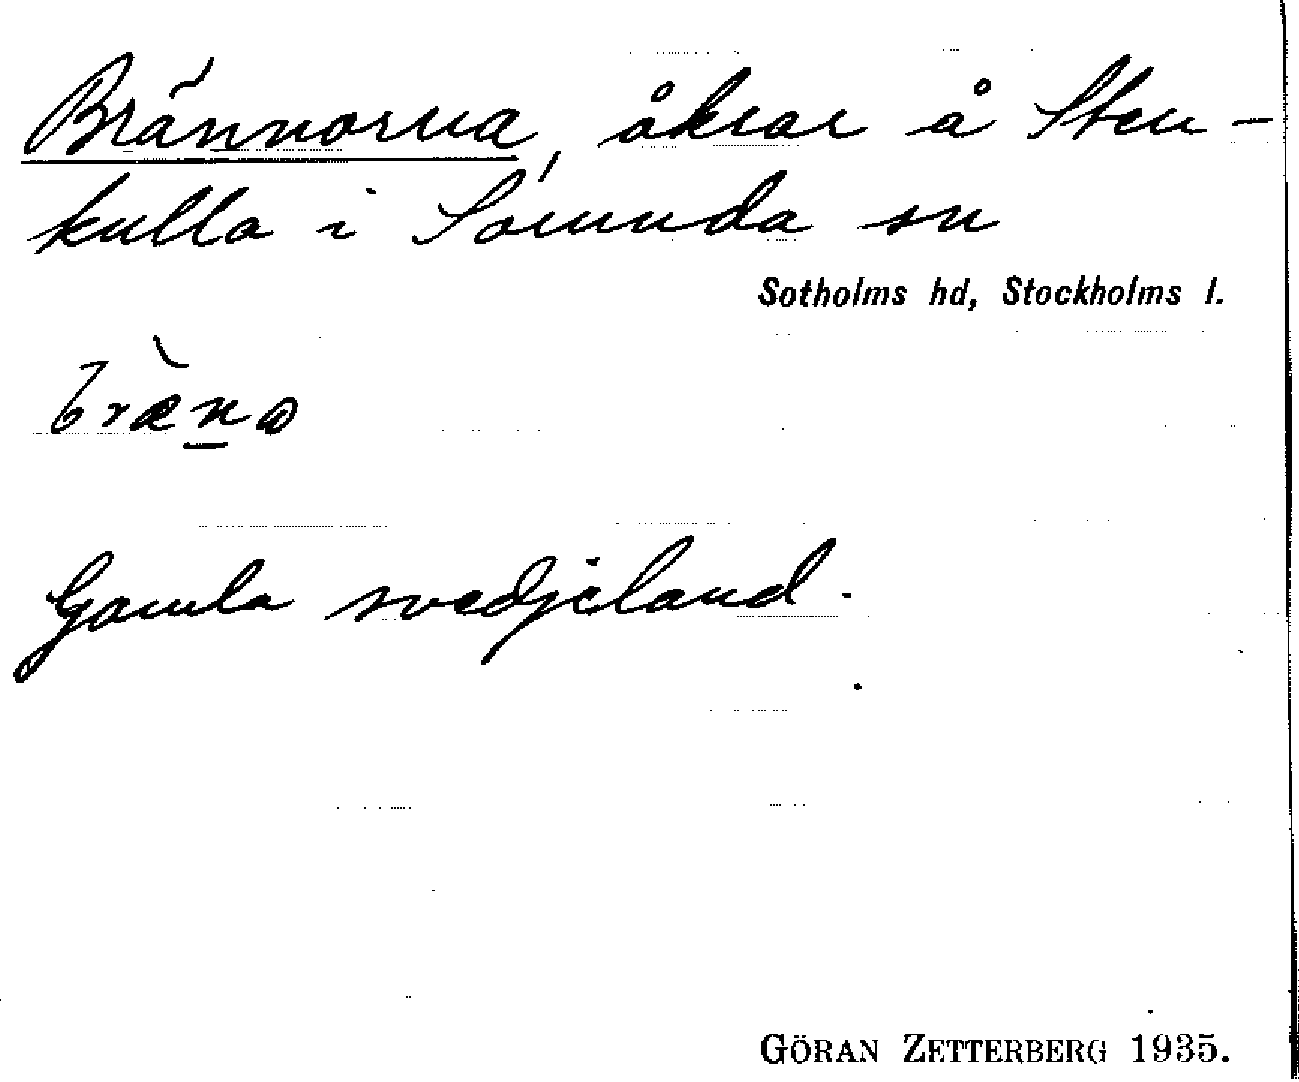 Brännorna, åkrar å Sten-
kulla i Sorunda sn
Sotholms hd, Stockholms l.
Gamla svedjeland.
GÖRAN ZETTERBERG 1935.